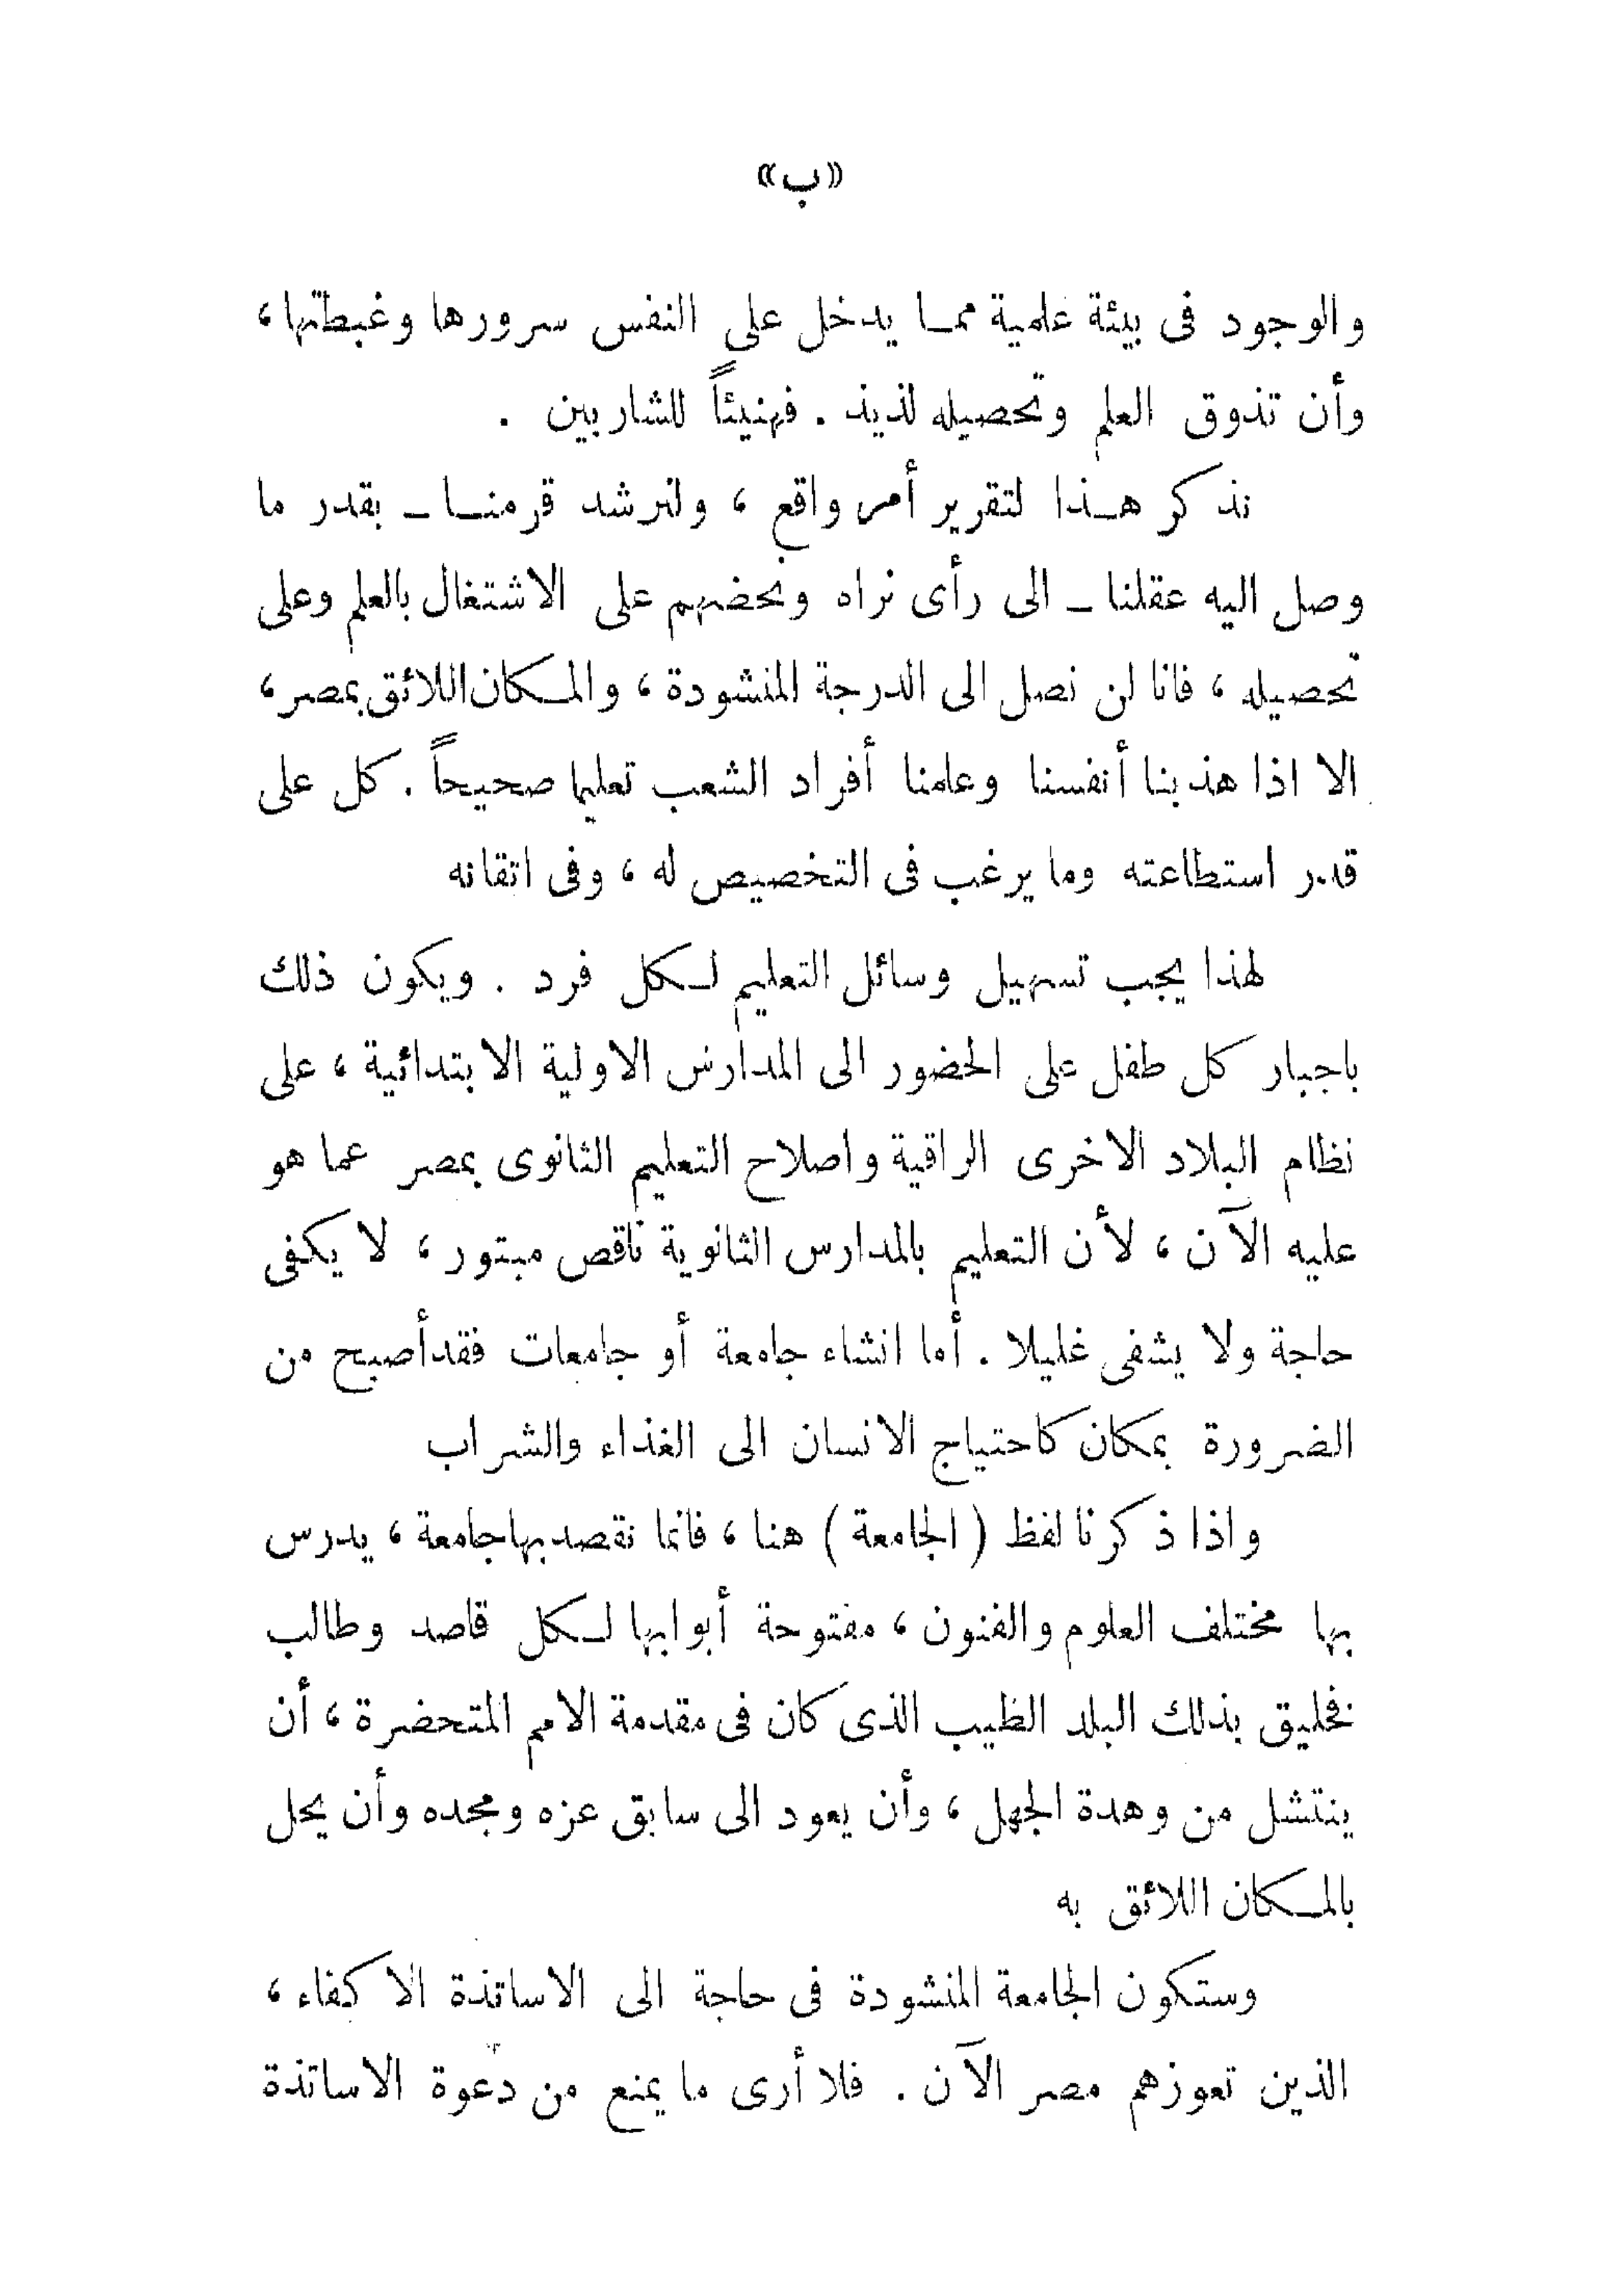 «ب»
والوجود فى بيئة علمية ممـا يدخل على النفس سرورها وغبطتها،
وأن تذوق العلم وتحصيله لذيذ . فهنيئاً للشاربين .
نذكر هـذا لتقرير أمر واقع ، ولنرشد قومنـا ـ بقدر ما
وصل اليه عقلنا ـ الى رأى نراه ونحضهم على الاشتغال بالعلم وعلى
تحصيله ، فانا لن نصل الى الدرجة المنشودة ، والمـكان اللائق بمصر،
الا اذا هذبنا أنفسنا وعلمنا أفراد الشعب تعليما صحيحاً . كل على
قدر استطاعته وما يرغب فى التخصيص له ، وفى اتقانه
لهذا يجب تسهيل وسائل التعليم لـكل فرد . ويكون ذلك
باجبار كل طفل على الحضور الى المدارس الاولية الابتدائية ، على
نظام البلاد الاخرى الراقية واصلاح التعليم الثانوى بمصر عما هو
عليه الآن ، لأن التعليم بالمدارس الثانوية ناقص مبتور ، لا يكفى
حاجة ولا يشفى غليلا . أما انشاء جامعة أو جامعات فقد أصبح من
الضرورة بمكان كاحتياج الانسان الى الغذاء والشراب
واذا ذكرنا لفظ ( الجامعة ) هنا ، فانما نقصد بها جامعة ، يدرس
بها مختلف العلوم والفنون ، مفتوحة أبوابها لـكل قاصد وطالب
فخليق بذلك البلد الطيب الذى كان فى مقدمة الامم المتحضرة ، أن
ينتشل من وهدة الجهل ، وأن يعود الى سابق عزه ومجده وأن يحل
بالمـكان اللائق به
وستكون الجامعة المنشودة فى حاجة الى الاساتذة الاكفاء ،
الذين تعوزهم مصر الآن . فلا أرى ما يمنع من دعوة الاساتذة